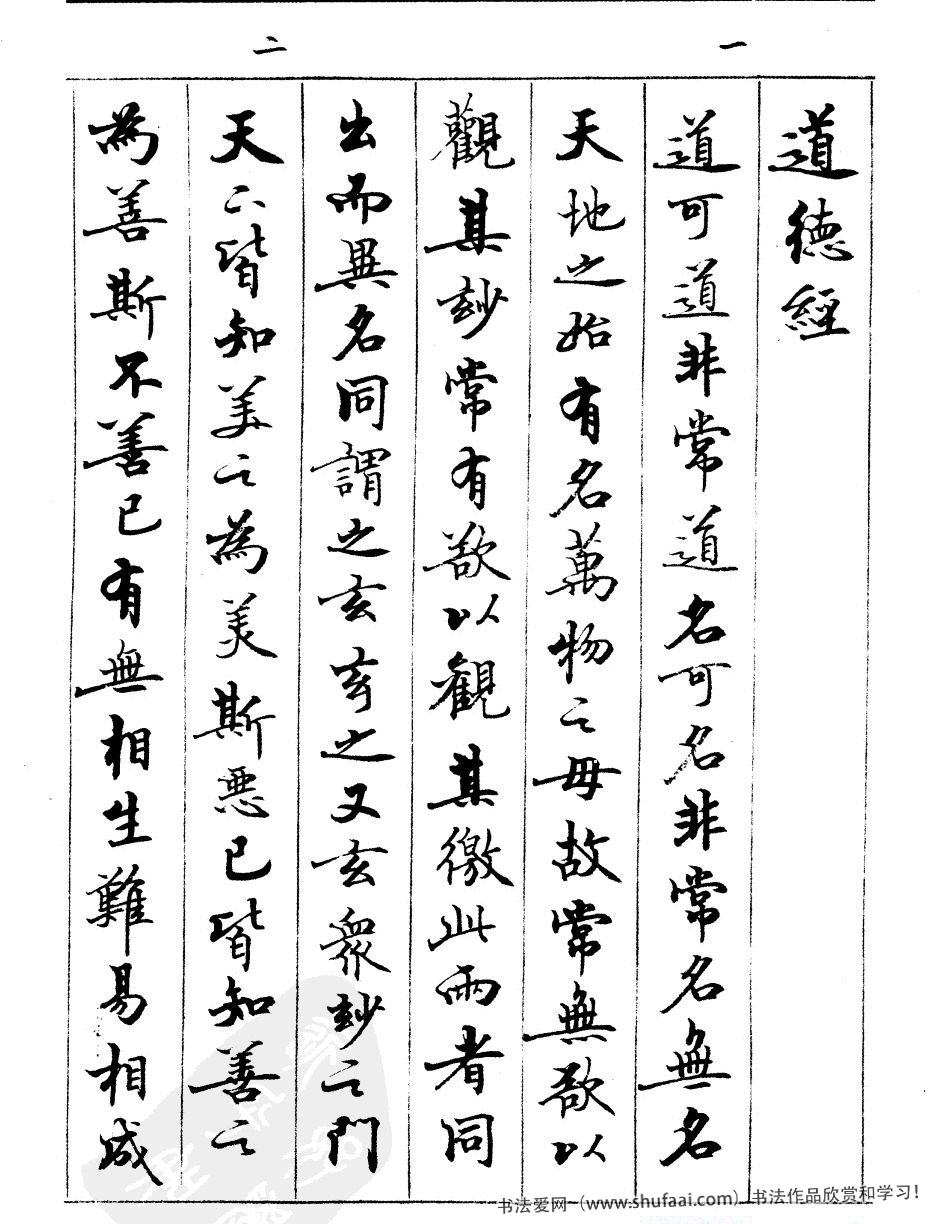 一
二
道德經
道可道非常道名可名非常名無名
天地之始有名萬物之母故常無欲以
觀其玅常有欲以觀其徼此兩者同
出而異名同謂之玄玄之又玄衆玅之門
天下皆知美之為美斯惡已皆知善之
為善斯不善已有無相生難易相成
书法爱网 (www.shufaai.com) 书法作品欣赏和学习!